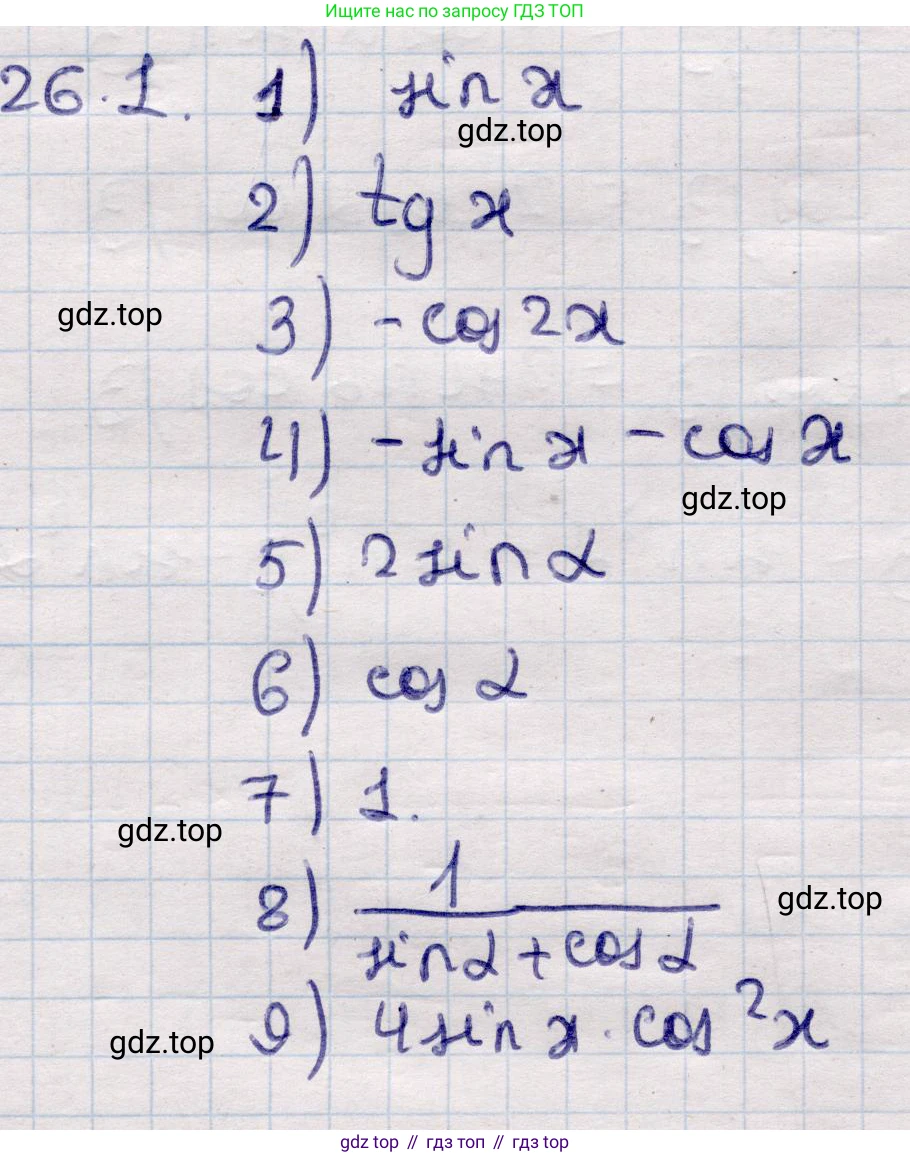 Ищите нас по запросу ГДЗ ТОП
26.1. 1) sin x
gdz.top
2) tg x
gdz.top
3) -cos 2x
4) -sin x - cos x
gdz.top
5) 2 sin α
6) cos α
7) 1.
gdz.top
8) 1/(sin α + cos α)
gdz.top
9) 4 sin x · cos²x
gdz.top
gdz top // гдз топ // gdz top